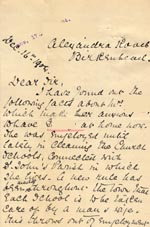 Dec 16th 1902
Alexandra Road
Birkenhead.
Dear Sir,
I have found out the
following facts about Mr.
which made her anxious
to have E as home now.
She was employed until
lately in cleaning the Church
Schools, connected with
St John's Parish in which
she lives. A new rule has
been throughout the town that
Each School is to be taken
care of by a man & wife.
This throws out of employment